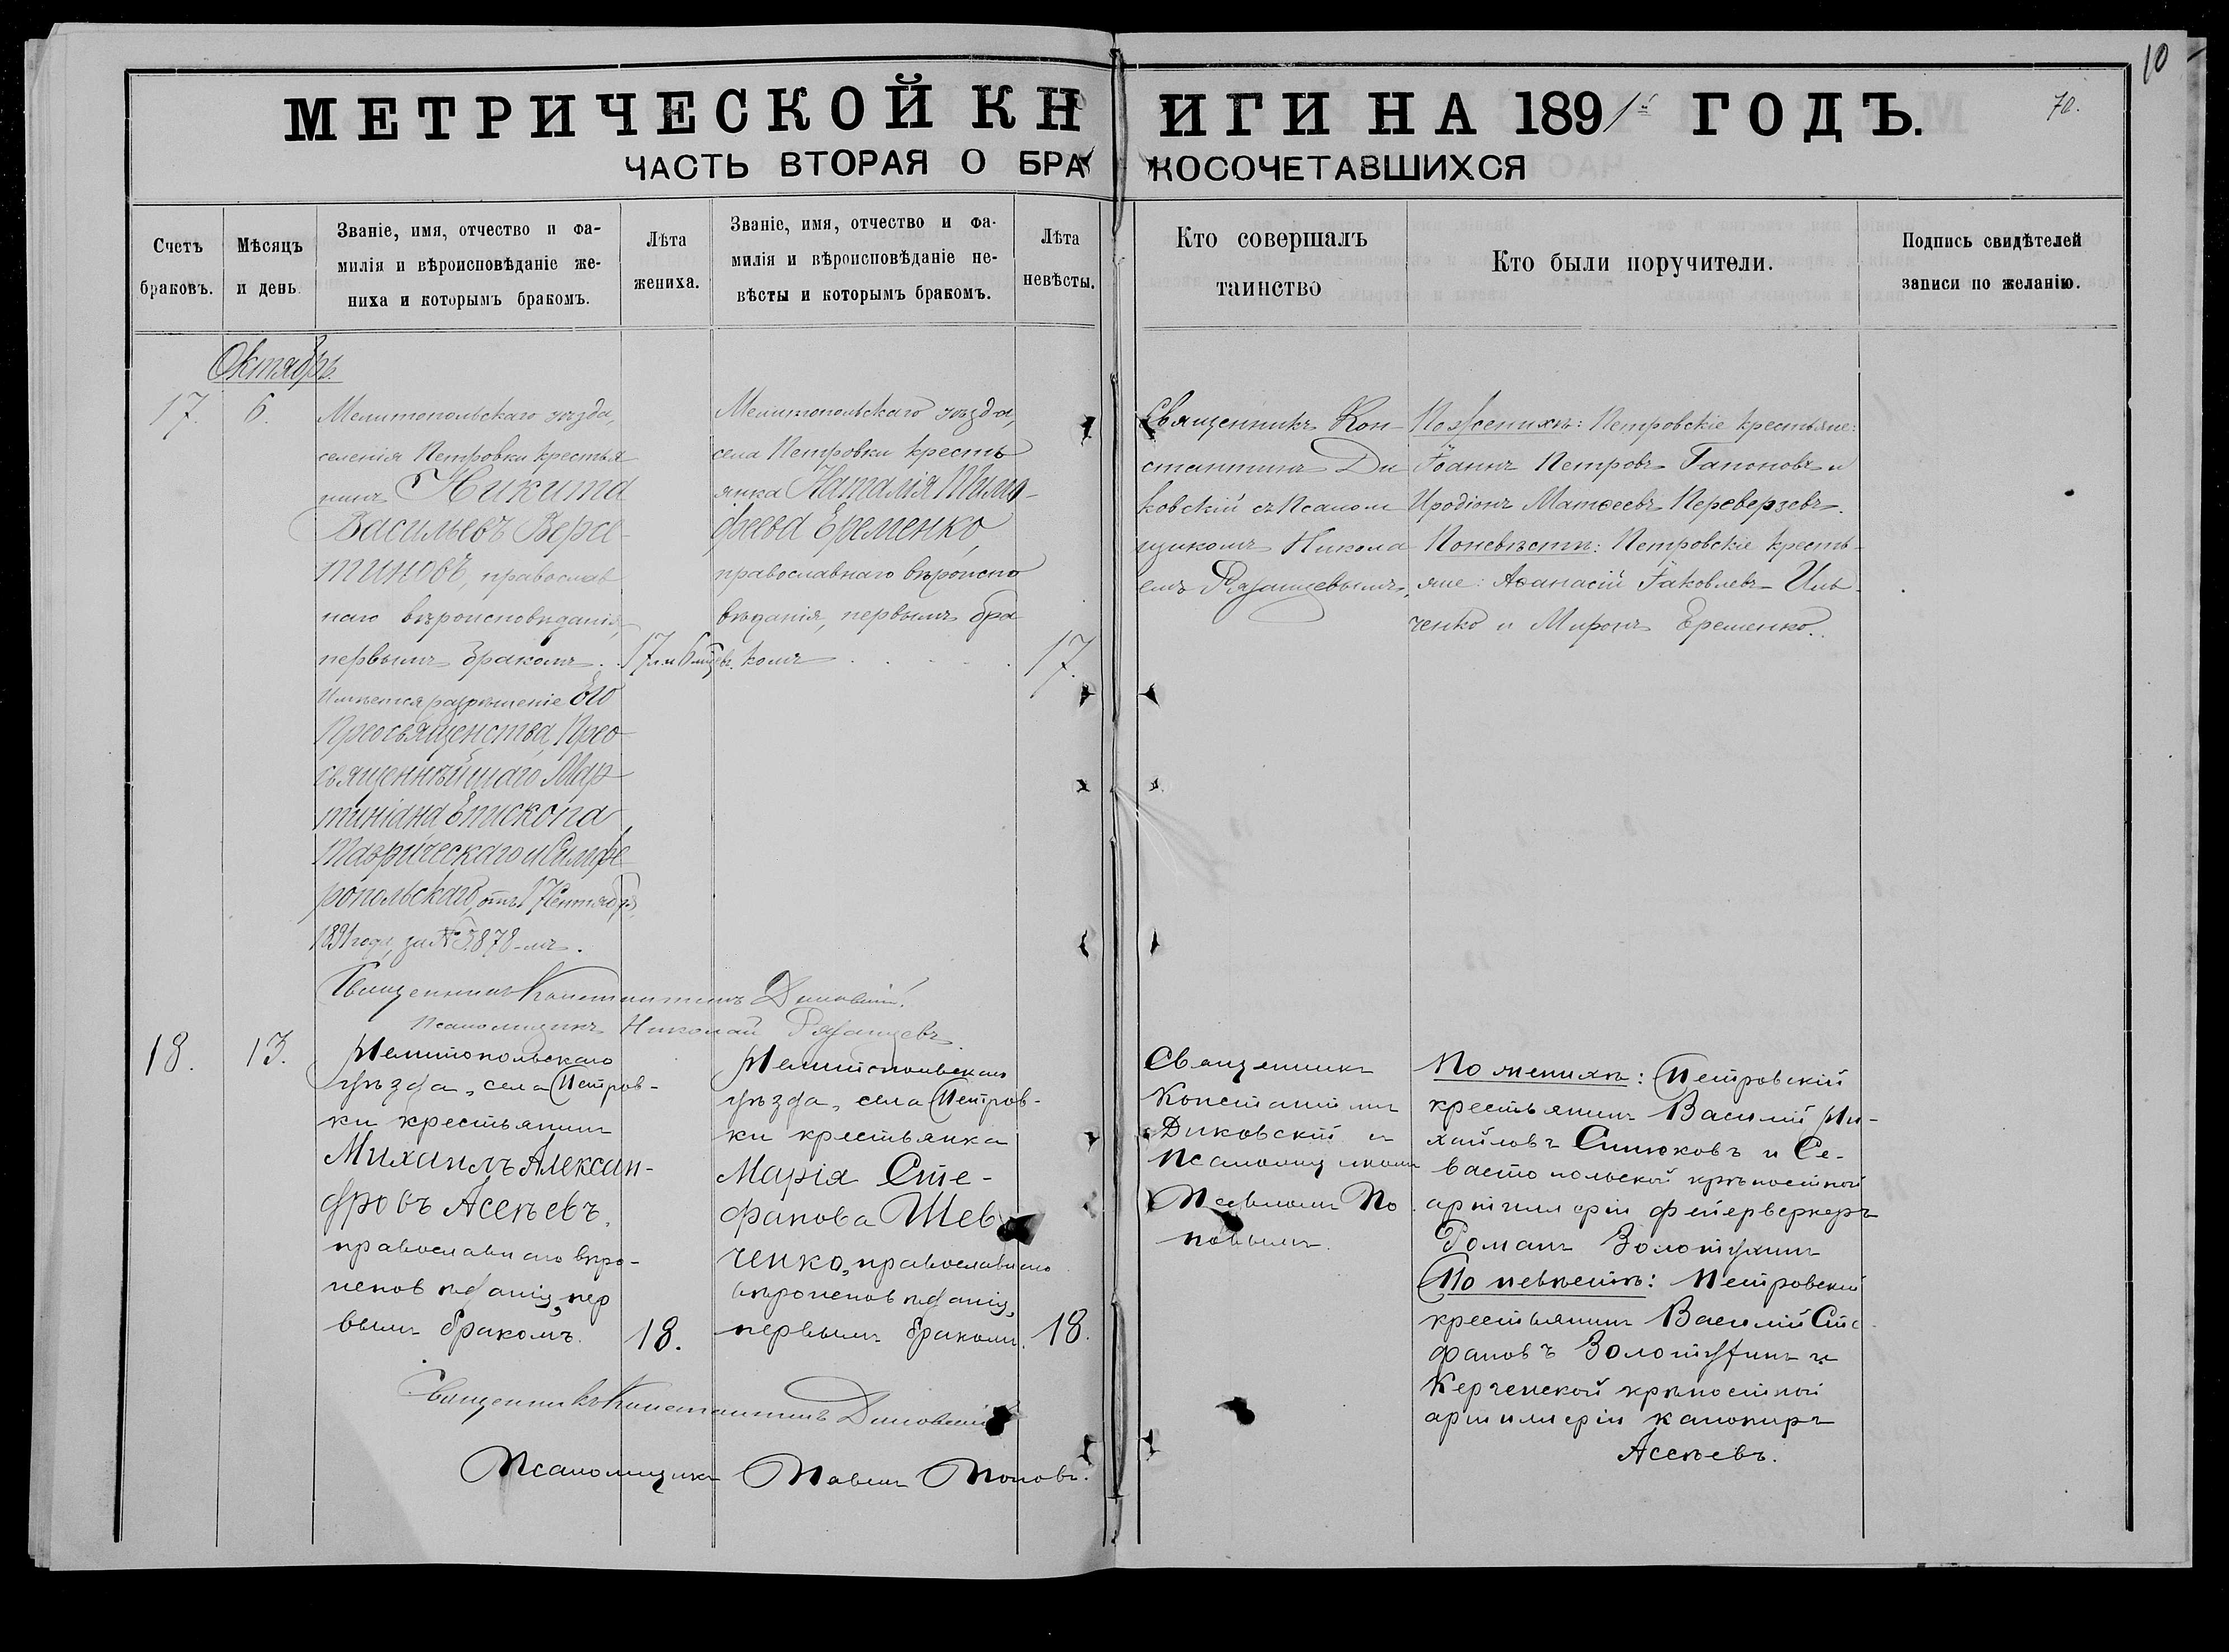 10
70.
МЕТРИЧЕСКОЙ КНИГИ НА 1891й ГОДЪ.
ЧАСТЬ ВТОРАЯ О БРАКОСОЧЕТАВШИХСЯ
Счетъ
браковъ.
Мѣсяцъ
и день
Званіе, имя, отчество и фа-
милія и вѣроисповѣданіе же-
ниха и которымъ бракомъ.
Лѣта
жениха.
Званіе, имя, отчество и фа-
милія и вѣроисповѣданіе не-
вѣсты и которымъ бракомъ.
Лѣта
невѣсты.
Кто совершалъ
таинство
Кто были поручители.
Подпись свидѣтелей
записи по желанію.
Октябрь.
17.
6.
Мелитопольскаго уѣзда,
селенія Петровки крестья
нинъ Никита
Васильевъ Вера-
тиновъ, православ
наго вѣроисповѣданія,
первымъ бракомъ.
Имѣется разрѣшеніе Его
Преосвященства, Прео
священнѣйшаго Мар
тиніана Епископа
Таврическаго и Симфе
ропольскаго, отъ 17 Сентября
1891 года, за № 5878-мъ.
17 л. и 6 мѣсцевъ.
Мелитопольскаго уѣзда,
села Петровки кресть
янка Наталія Тимо-
феева Еременко,
православнаго вѣроиспо
вѣданія, первымъ бра
комъ
17.
Священникъ Кон-
стантинъ Ди
ковскій съ Псалом
щикомъ Никола
емъ Рязанцевымъ.
По женихѣ: Петровскіе крестьяне:
Іоаннъ Петровъ Гапоновъ и
Иродіонъ Матѳеевъ Переверзевъ.
По невѣстѣ: Петровскіе кресть-
яне: Аѳанасій Іаковлевъ Иль-
ченко и Миронъ Еременко.
Священникъ Константинъ Диковскій.
Псаломщикъ Николай Рязанцевъ.
18.
13.
Мелитопольскаго
уѣзда, села Петров-
ки крестьянинъ
Михаилъ Алексан-
дровъ Асѣевъ,
православнаго вѣро-
исповѣданія, пер
вымъ бракомъ.
18.
Мелитопольскаго
уѣзда, села Петров-
ки крестьянка
Марія Сте-
фанова Шев
ченко, православнаго
вѣроисповѣданія,
первымъ бракомъ.
18.
Священникъ
Константинъ
Диковскій и
Псаломщикомъ
Павломъ По
повымъ.
По женихѣ: Петровскій
крестьянинъ Василій Ми-
хайловъ Синюковъ и Се-
вастопольской крѣпостной
артиллеріи фейерверкеръ
Романъ Золотухинъ
По невѣстѣ: Петровскій
крестьянинъ Василій Сте
фановъ Золотухинъ и
Керченской крѣпостной
артиллеріи канониръ
Асѣевъ.
Священникъ Константинъ Диковскій
Псаломщикъ Павелъ Поповъ.